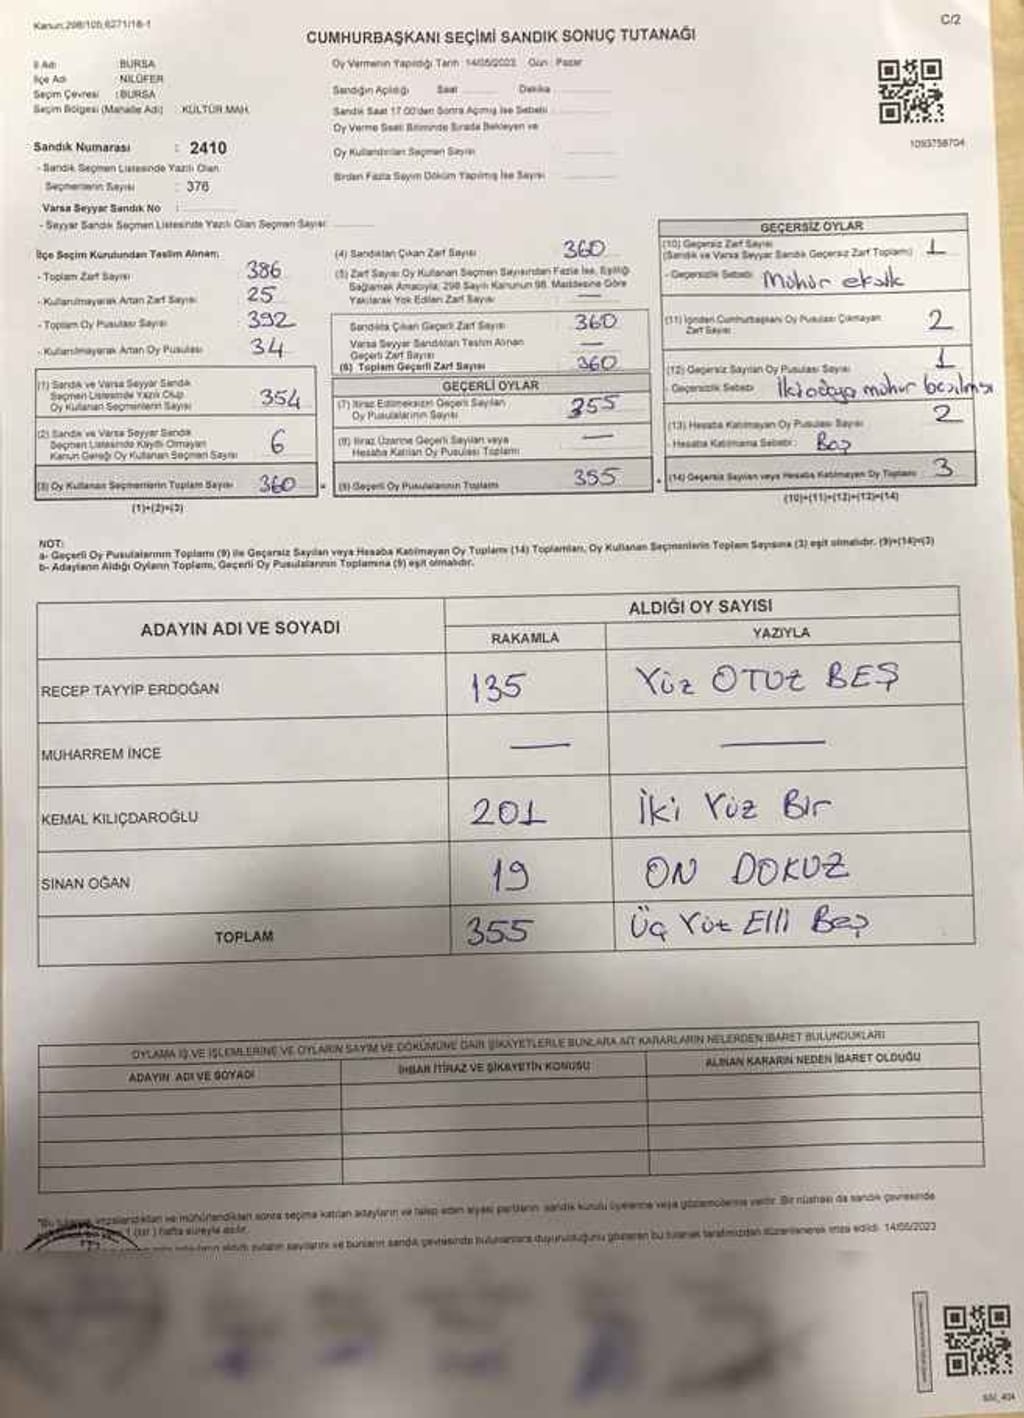 Kanun:298/105,6271/16-1
C/2
CUMHURBAŞKANI SEÇİMİ SANDIK SONUÇ TUTANAĞI
İl Adı : BURSA
İlçe Adı : NİLÜFER
Seçim Çevresi : BURSA
Seçim Bölgesi (Mahalle Adı) : KÜLTÜR MAH.
Oy Vermenin Yapıldığı Tarih : 14/05/2023 Gün : Pazar
Sandığın Açıldığı Saat Dakika
Sandık Saat 17.00'den Sonra Açılmış İse Sebebi
Oy Verme Saati Bitiminde Sırada Bekleyen ve
Oy Kullandırılan Seçmen Sayısı
Birden Fazla Sayım Döküm Yapılmış İse Sayısı
1093758704
Sandık Numarası : 2410
- Sandık Seçmen Listesinde Yazılı Olan
Seçmenlerin Sayısı : 376
Varsa Seyyar Sandık No :
- Seyyar Sandık Seçmen Listesinde Yazılı Olan Seçmen Sayısı
İlçe Seçim Kurulundan Teslim Alınan:
- Toplam Zarf Sayısı 386
- Kullanılmayarak Artan Zarf Sayısı 25
- Toplam Oy Pusulası Sayısı 392
- Kullanılmayarak Artan Oy Pusulası 34
(1) Sandık ve Varsa Seyyar Sandık
Seçmen Listesinde Yazılı Olup
Oy Kullanan Seçmenlerin Sayısı 354
(2) Sandık ve Varsa Seyyar Sandık
Seçmen Listesinde Kayıtlı Olmayan
Kanun Gereği Oy Kullanan Seçmen Sayısı 6
(3) Oy Kullanan Seçmenlerin Toplam Sayısı 360
(1)+(2)=(3)
(4) Sandıktan Çıkan Zarf Sayısı 360
(5) Zarf Sayısı Oy Kullanan Seçmen Sayısından Fazla İse, Eşitliği
Sağlamak Amacıyla, 298 Sayılı Kanunun 98. Maddesine Göre
Yakılarak Yok Edilen Zarf Sayısı —
Sandıkta Çıkan Geçerli Zarf Sayısı 360
Varsa Seyyar Sandıktan Teslim Alınan
Geçerli Zarf Sayısı —
(6) Toplam Geçerli Zarf Sayısı 360
GEÇERLİ OYLAR
(7) İtiraz Edilmeksizin Geçerli Sayılan
Oy Pusulalarının Sayısı 355
(8) İtiraz Üzerine Geçerli Sayılan veya
Hesaba Katılan Oy Pusulası Toplamı —
(9) Geçerli Oy Pusulalarının Toplamı 355
GEÇERSİZ OYLAR
(10) Geçersiz Zarf Sayısı
(Sandık ve Varsa Seyyar Sandık Geçersiz Zarf Toplamı) 1
- Geçersizlik Sebebi : Mühür eksik
(11) İçinden Cumhurbaşkanı Oy Pusulası Çıkmayan
Zarf Sayısı 2
(12) Geçersiz Sayılan Oy Pusulası Sayısı 1
- Geçersizlik Sebebi İki adaya mühür basılması
(13) Hesaba Katılmayan Oy Pusulası Sayısı 2
- Hesaba Katılmama Sebebi : Boş
(14) Geçersiz Sayılan veya Hesaba Katılmayan Oy Toplamı 3
(10)+(11)+(12)+(13)=(14)
NOT:
a- Geçerli Oy Pusulalarının Toplamı (9) ile Geçersiz Sayılan veya Hesaba Katılmayan Oy Toplamı (14) Toplamları, Oy Kullanan Seçmenlerin Toplam Sayısına (3) eşit olmalıdır. (9)+(14)=(3)
b- Adayların Aldığı Oyların Toplamı, Geçerli Oy Pusulalarının Toplamına (9) eşit olmalıdır.
ADAYIN ADI VE SOYADI
ALDIĞI OY SAYISI
RAKAMLA YAZIYLA
RECEP TAYYİP ERDOĞAN 135 Yüz OTUZ BEŞ
MUHARREM İNCE — —
KEMAL KILIÇDAROĞLU 201 İki Yüz Bir
SİNAN OĞAN 19 ON DOKUZ
TOPLAM 355 Üç Yüz Elli Beş
OYLAMA İŞ VE İŞLEMLERİNE VE OYLARIN SAYIM VE DÖKÜMÜNE DAİR ŞİKAYETLERLE BUNLARA AİT KARARLARIN NELERDEN İBARET BULUNDUKLARI
ADAYIN ADI VE SOYADI İHBAR İTİRAZ VE ŞİKAYETİN KONUSU ALINAN KARARIN NEDEN İBARET OLDUĞU
"Bu imzalandıktan ve mühürlendikten sonra seçime katılan adayların ve talep eden siyasi partilerin sandık kurulu üyelerine veya gözlemcilerine verilir. Bir nüshası da sandık çevresinde
1 (bir) hafta süreyle asılır.
aldığı oyların sayılarını ve bunların sandık çevresinde bulunanlara duyurulduğunu gösteren bu tutanak tarafımızdan düzenlenerek imza edildi. 14/05/2023